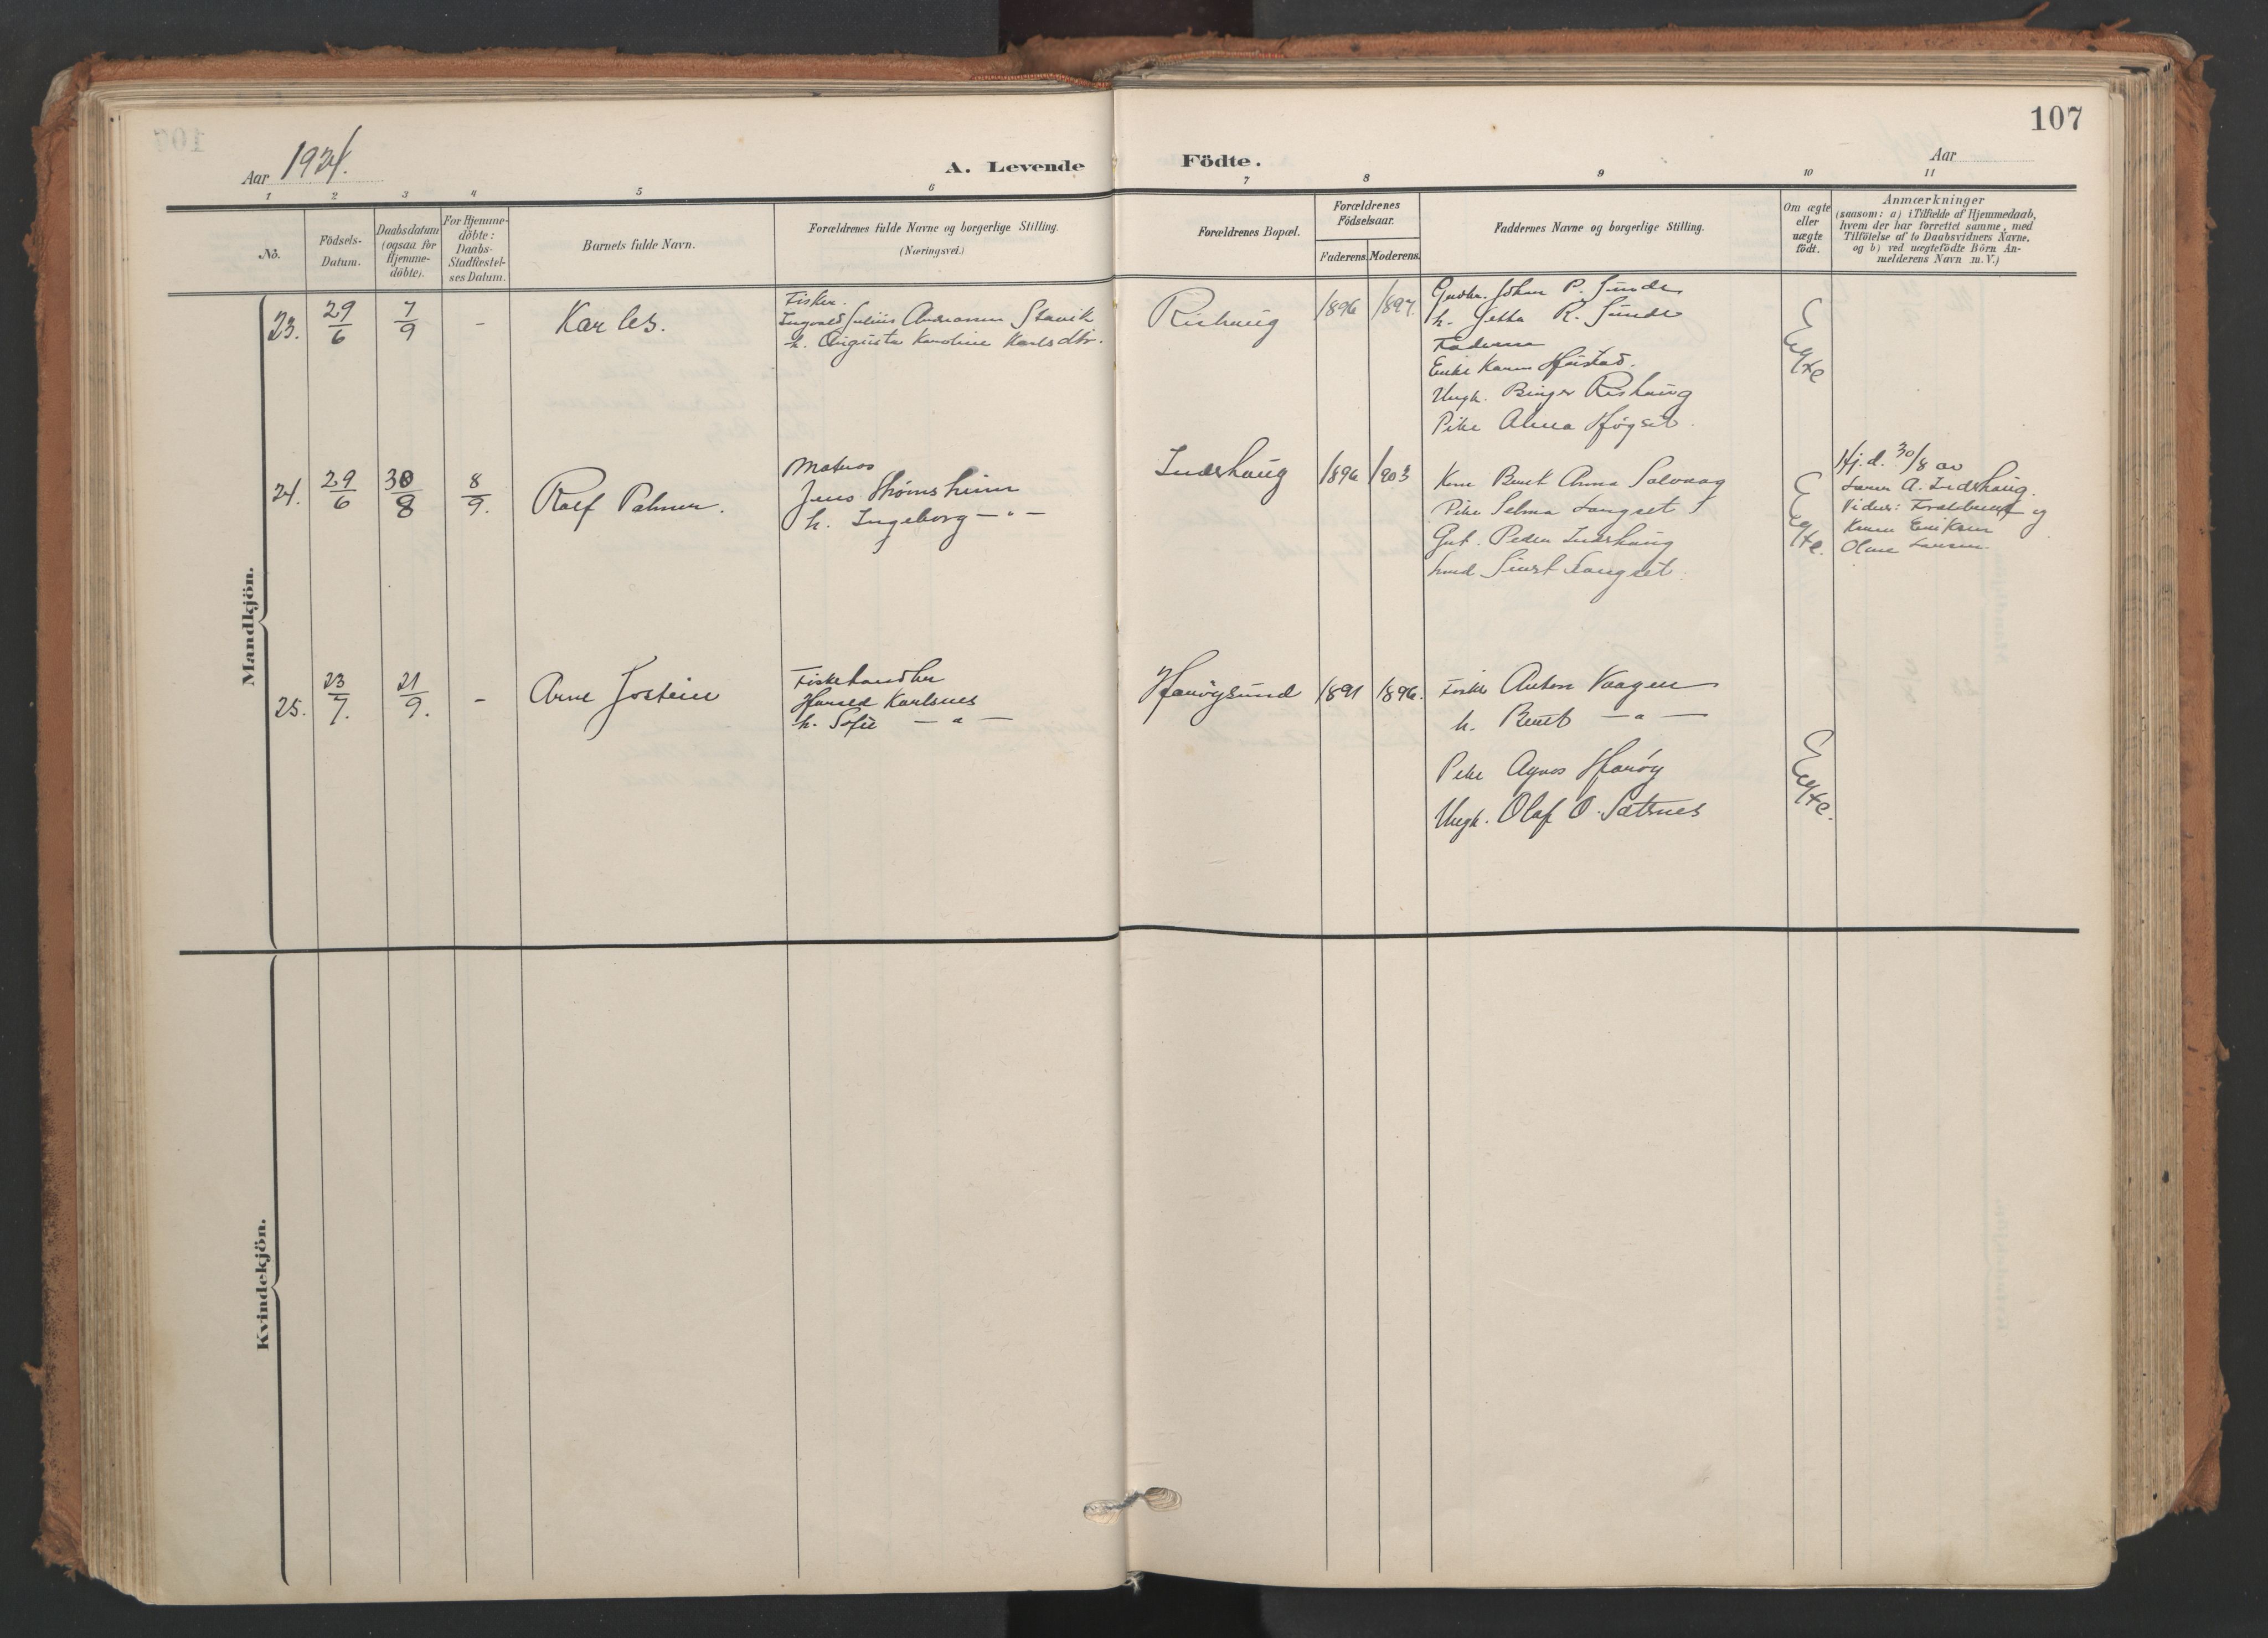 107
Aar 1924.
A. Levende Födte.
Aar
1 2 3 4 5 6 7 8 9 10 11
No.
Födsels-
Datum.
Daabsdatum
(ogsaa for
Hjemme-
döbte).
For Hjemme-
döbte:
Daabs-
Stadfæstel-
ses Datum.
Barnets fulde Navn.
Forældrenes fulde Navne og borgerlige Stilling.
(Næringsvei.)
Forældrenes Bopæl.
Forældrenes
Födselsaar.
Faderens. Moderens.
Faddernes Navne og borgerlige Stilling.
Om ægte
eller
uægte
født.
Anmærkninger
(saasom: a) i Tilfælde af Hjemmedaab,
hvem der har forrettet samme, med
Tilföielse af to Daabsvidners Navne,
og b) ved uægtefödte Börn An-
melderens Navn m. V.)
Mandkjön.
23. 29/6 7/9 - Karles.
Fisker.
Ingvald Julius Andreassen Stavik
h. Augusta Karoline Karlsdtr.
Rishaug 1896 1897.
Gndbr. Johan P. Sunde
h. Jetta R. Sunde
Faderen
Enke Karen Hustad.
Ungk. Birger Rishaug
Pike Alma Høgset.
Egte
24. 29/6 30/8 8/9. Rolf Palmer.
Matros
Jens Strømsheim
h. Ingeborg - " -
Inderhaug 1896 1903
Kone Berit Anna Solvaag
Pike Selma Langset
Gut. Peder Inderhaug
Smed Sivert Langset.
Egte.
Hj.d. 30/8 av
Lærer A. Inderhaug.
Vidner: og
Eriksen
Larsen.
25. 23/7. 21/9. - Arne Jostein
Fiskehandler
Harald Karlsnes
h. Sofie - " -
Harøysund 1891 1896.
Fisker Anton Vaagen
h. Berit - " -
Pike Agnes Harøy
Ungk. Olaf O. Sætrnes
Egte.
Kvindekjön.